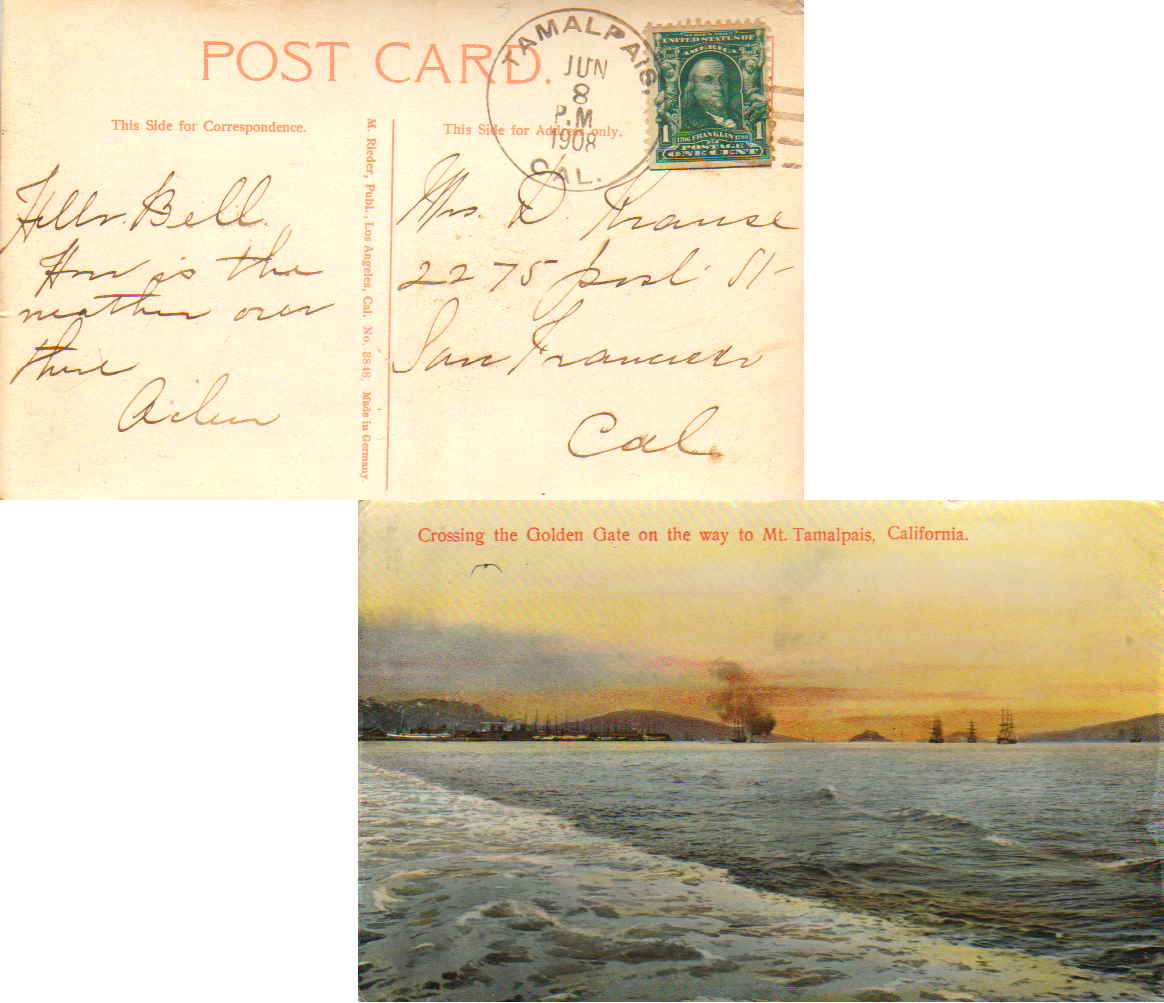 POST CARD.
TAMALPAIS,
JUN
8
P.M
1908
CAL.
UNITED STATES OF
AMERICA
1 FRANKLIN 1
POSTAGE
ONE CENT
This Side for Correspondence.
This Side for Address only.
M. Rieder, Publ., Los Angeles, Cal. No. 8848. Made in Germany.
Hello Bell.
How is the
weather over
there
Aileen
Mrs. D. Krause
2275 post St
San Francisco
Cal.
Crossing the Golden Gate on the way to Mt. Tamalpais, California.